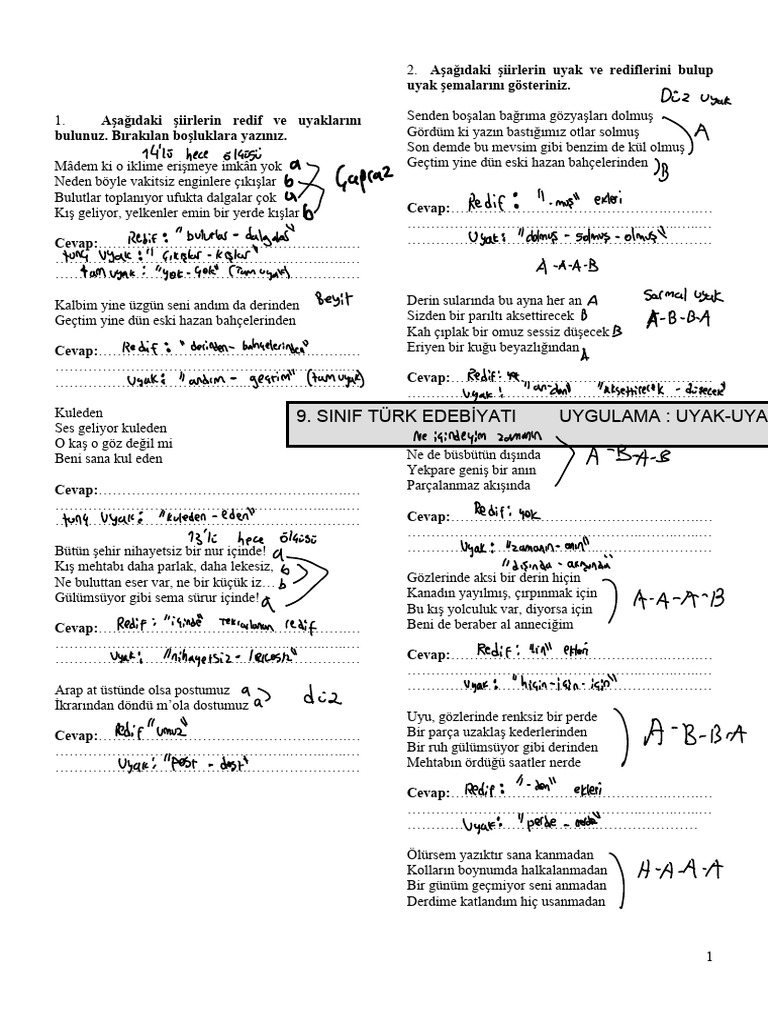 1. Aşağıdaki şiirlerin redif ve uyaklarını
bulunuz. Bırakılan boşluklara yazınız.
14'lü hece ölçüsü
Mâdem ki o iklime erişmeye imkân yok a
Neden böyle vakitsiz enginlere çıkışlar b
Bulutlar toplanıyor ufukta dalgalar çok a
Kış geliyor, yelkenler emin bir yerde kışlar b
Çapraz
Cevap: Redif: "bulutlar - dalgalar"
tunç uyak: "çıkışlar - kışlar"
tam uyak: "yok - çok" (tam uyak)
Kalbim yine üzgün seni andım da derinden
Beyit
Geçtim yine dün eski hazan bahçelerinden
Cevap: Redif: "derinden - bahçelerinden"
Uyak: "andım - geçtim" (tam uyak)
Kuleden
Ses geliyor kuleden
O kaş o göz değil mi
Beni sana kul eden
Cevap:
tunç uyak: "kuleden - eden"
13'lü hece ölçüsü
Bütün şehir nihayetsiz bir nur içinde! a
Kış mehtabı daha parlak, daha lekesiz, b
Ne buluttan eser var, ne bir küçük iz… b
Gülümsüyor gibi sema sürur içinde! a
Cevap: Redif: "içinde" tekrarlanan redif
Uyak: "nihayetsiz - lekesiz"
Arap at üstünde olsa postumuz a
İkrarından döndü m'ola dostumuz a
düz
Cevap: Redif "umuz"
Uyak: "post - dost"
2. Aşağıdaki şiirlerin uyak ve rediflerini bulup
uyak şemalarını gösteriniz.
Düz uyak
Senden boşalan bağrıma gözyaşları dolmuş
Gördüm ki yazın bastığımız otlar solmuş
Son demde bu mevsim gibi benzim de kül olmuş
A
Geçtim yine dün eski hazan bahçelerinden
B
Cevap: Redif: "-mış" ekleri
Uyak: "dolmuş - solmuş - olmuş"
A-A-A-B
Derin sularında bu ayna her an A
Sarmal uyak
Sizden bir parıltı aksettirecek B
A-B-B-A
Kah çıplak bir omuz sessiz düşecek B
Eriyen bir kuğu beyazlığından A
Cevap: Redif:
Uyak: "an-dan" "aksettirecek - düşecek"
9. SINIF TÜRK EDEBİYATI UYGULAMA : UYAK-UYA
Ne içindeyim zamanın
Ne de büsbütün dışında
Yekpare geniş bir anın
Parçalanmaz akışında
A-B-A-B
Cevap: Redif: yok
Uyak: "zamanın - anın"
"dışında - akışında"
Gözlerinde aksi bir derin hiçin
Kanadın yayılmış, çırpınmak için
Bu kış yolculuk var, diyorsa için
Beni de beraber al anneciğim
A-A-A-B
Cevap: Redif: "in" ekleri
Uyak: "hiçin-için-için"
Uyu, gözlerinde renksiz bir perde
Bir parça uzaklaş kederlerinden
Bir ruh gülümsüyor gibi derinden
Mehtabın ördüğü saatler nerde
A-B-B-A
Cevap: Redif: "-den" ekleri
Uyak: "perde - nerde"
Ölürsem yazıktır sana kanmadan
Kolların boynumda halkalanmadan
Bir günüm geçmiyor seni anmadan
Derdime katlandım hiç usanmadan
A-A-A-A
1